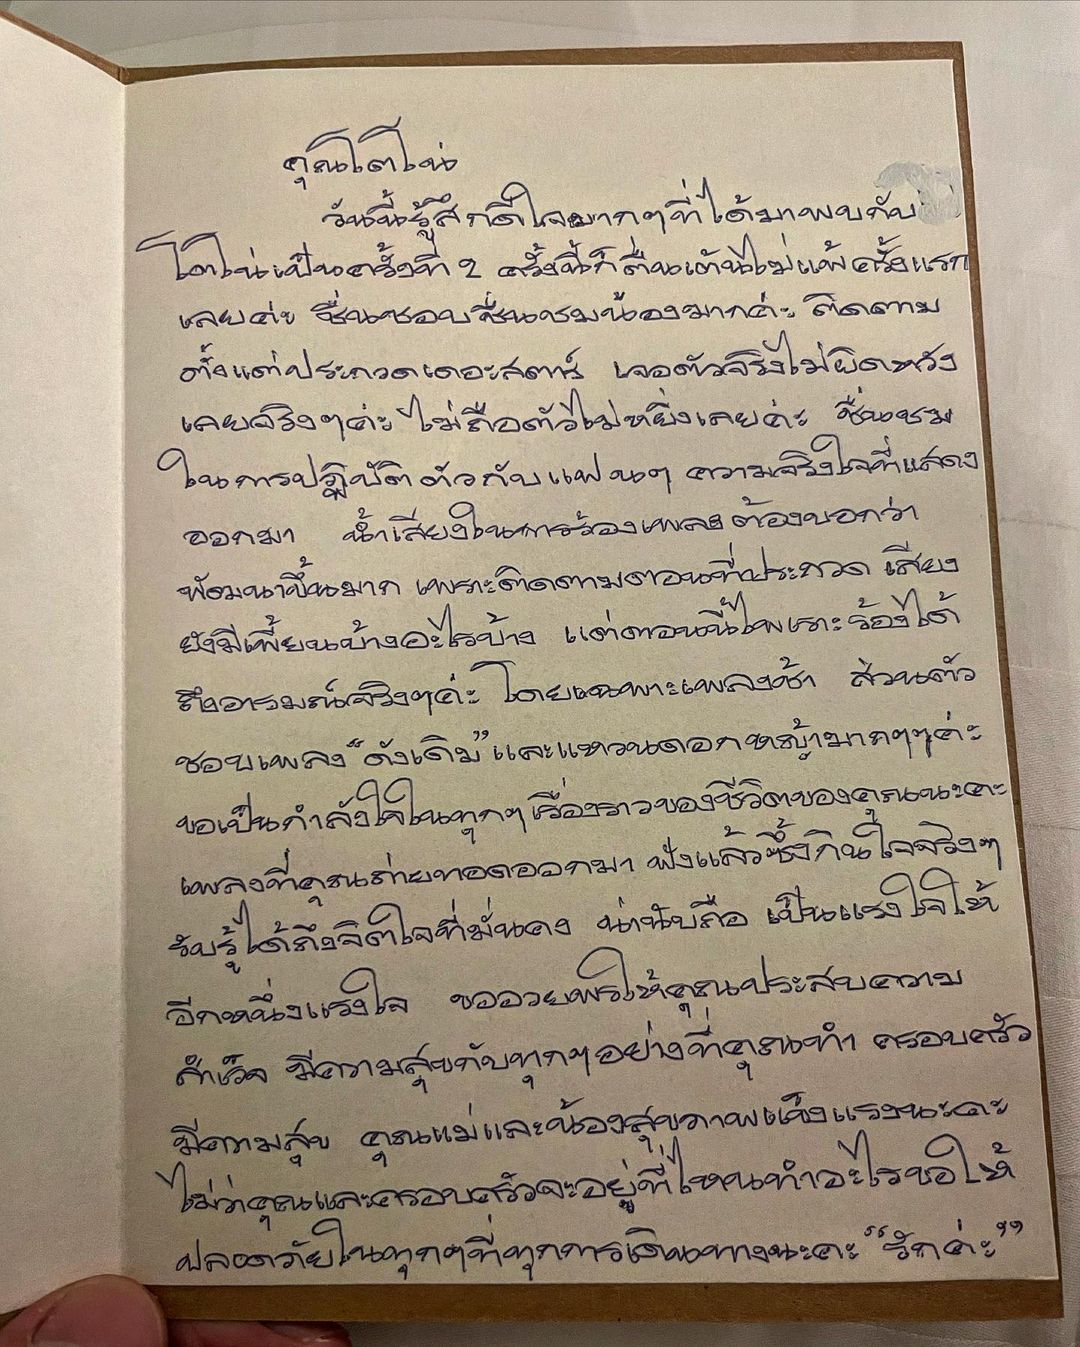 คุณโตโน่
วันนี้รู้สึกดีใจมากๆที่ได้มาพบกับ
โตโน่เป็นครั้งที่ 2 ครั้งนี้ก็ตื่นเต้นไม่แพ้ครั้งแรก
เลยค่ะ ชื่นชอบชื่นชมน้องมากค่ะ ติดตาม
ตั้งแต่ประกวดเดอะสตาร์ เจอตัวจริงไม่ผิดหวัง
เลยจริงๆค่ะ ไม่ถือตัวไม่หยิ่งเลยค่ะ ชื่นชม
ในการปฏิบัติตัวกับแฟนๆ ความจริงใจที่แสดง
ออกมา น้ำเสียงในการร้องเพลงต้องบอกว่า
พัฒนาขึ้นมาก เพราะติดตามตอนที่ประกวด เสียง
ยังมีเพี้ยนบ้างอะไรบ้าง แต่ตอนนี้ไพเราะร้องได้
ถึงอารมณ์จริงๆค่ะ โดยเฉพาะเพลงช้า ส่วนตัว
ชอบเพลง“ดังเดิม”และแหวนดอกหญ้ามากๆๆค่ะ
ขอเป็นกำลังใจในทุกๆเรื่องราวของชีวิตของคุณนะคะ
เพลงที่คุณถ่ายทอดออกมา ฟังแล้วซึ้งกินใจจริงๆ
รับรู้ได้ถึงจิตใจที่มั่นคง น่านับถือ เป็นแรงใจให้
อีกหนึ่งแรงใจ ขออวยพรให้คุณประสบความ
สำเร็จ มีความสุขกับทุกๆอย่างที่คุณทำ ครอบครัว
มีความสุข คุณแม่และน้องสุขภาพแข็งแรงนะคะ
ไม่ว่าคุณและครอบครัวจะอยู่ที่ไหนทำอะไรขอให้
ปลอดภัยในทุกๆที่ทุกการเดินทางนะคะ “รักค่ะ”